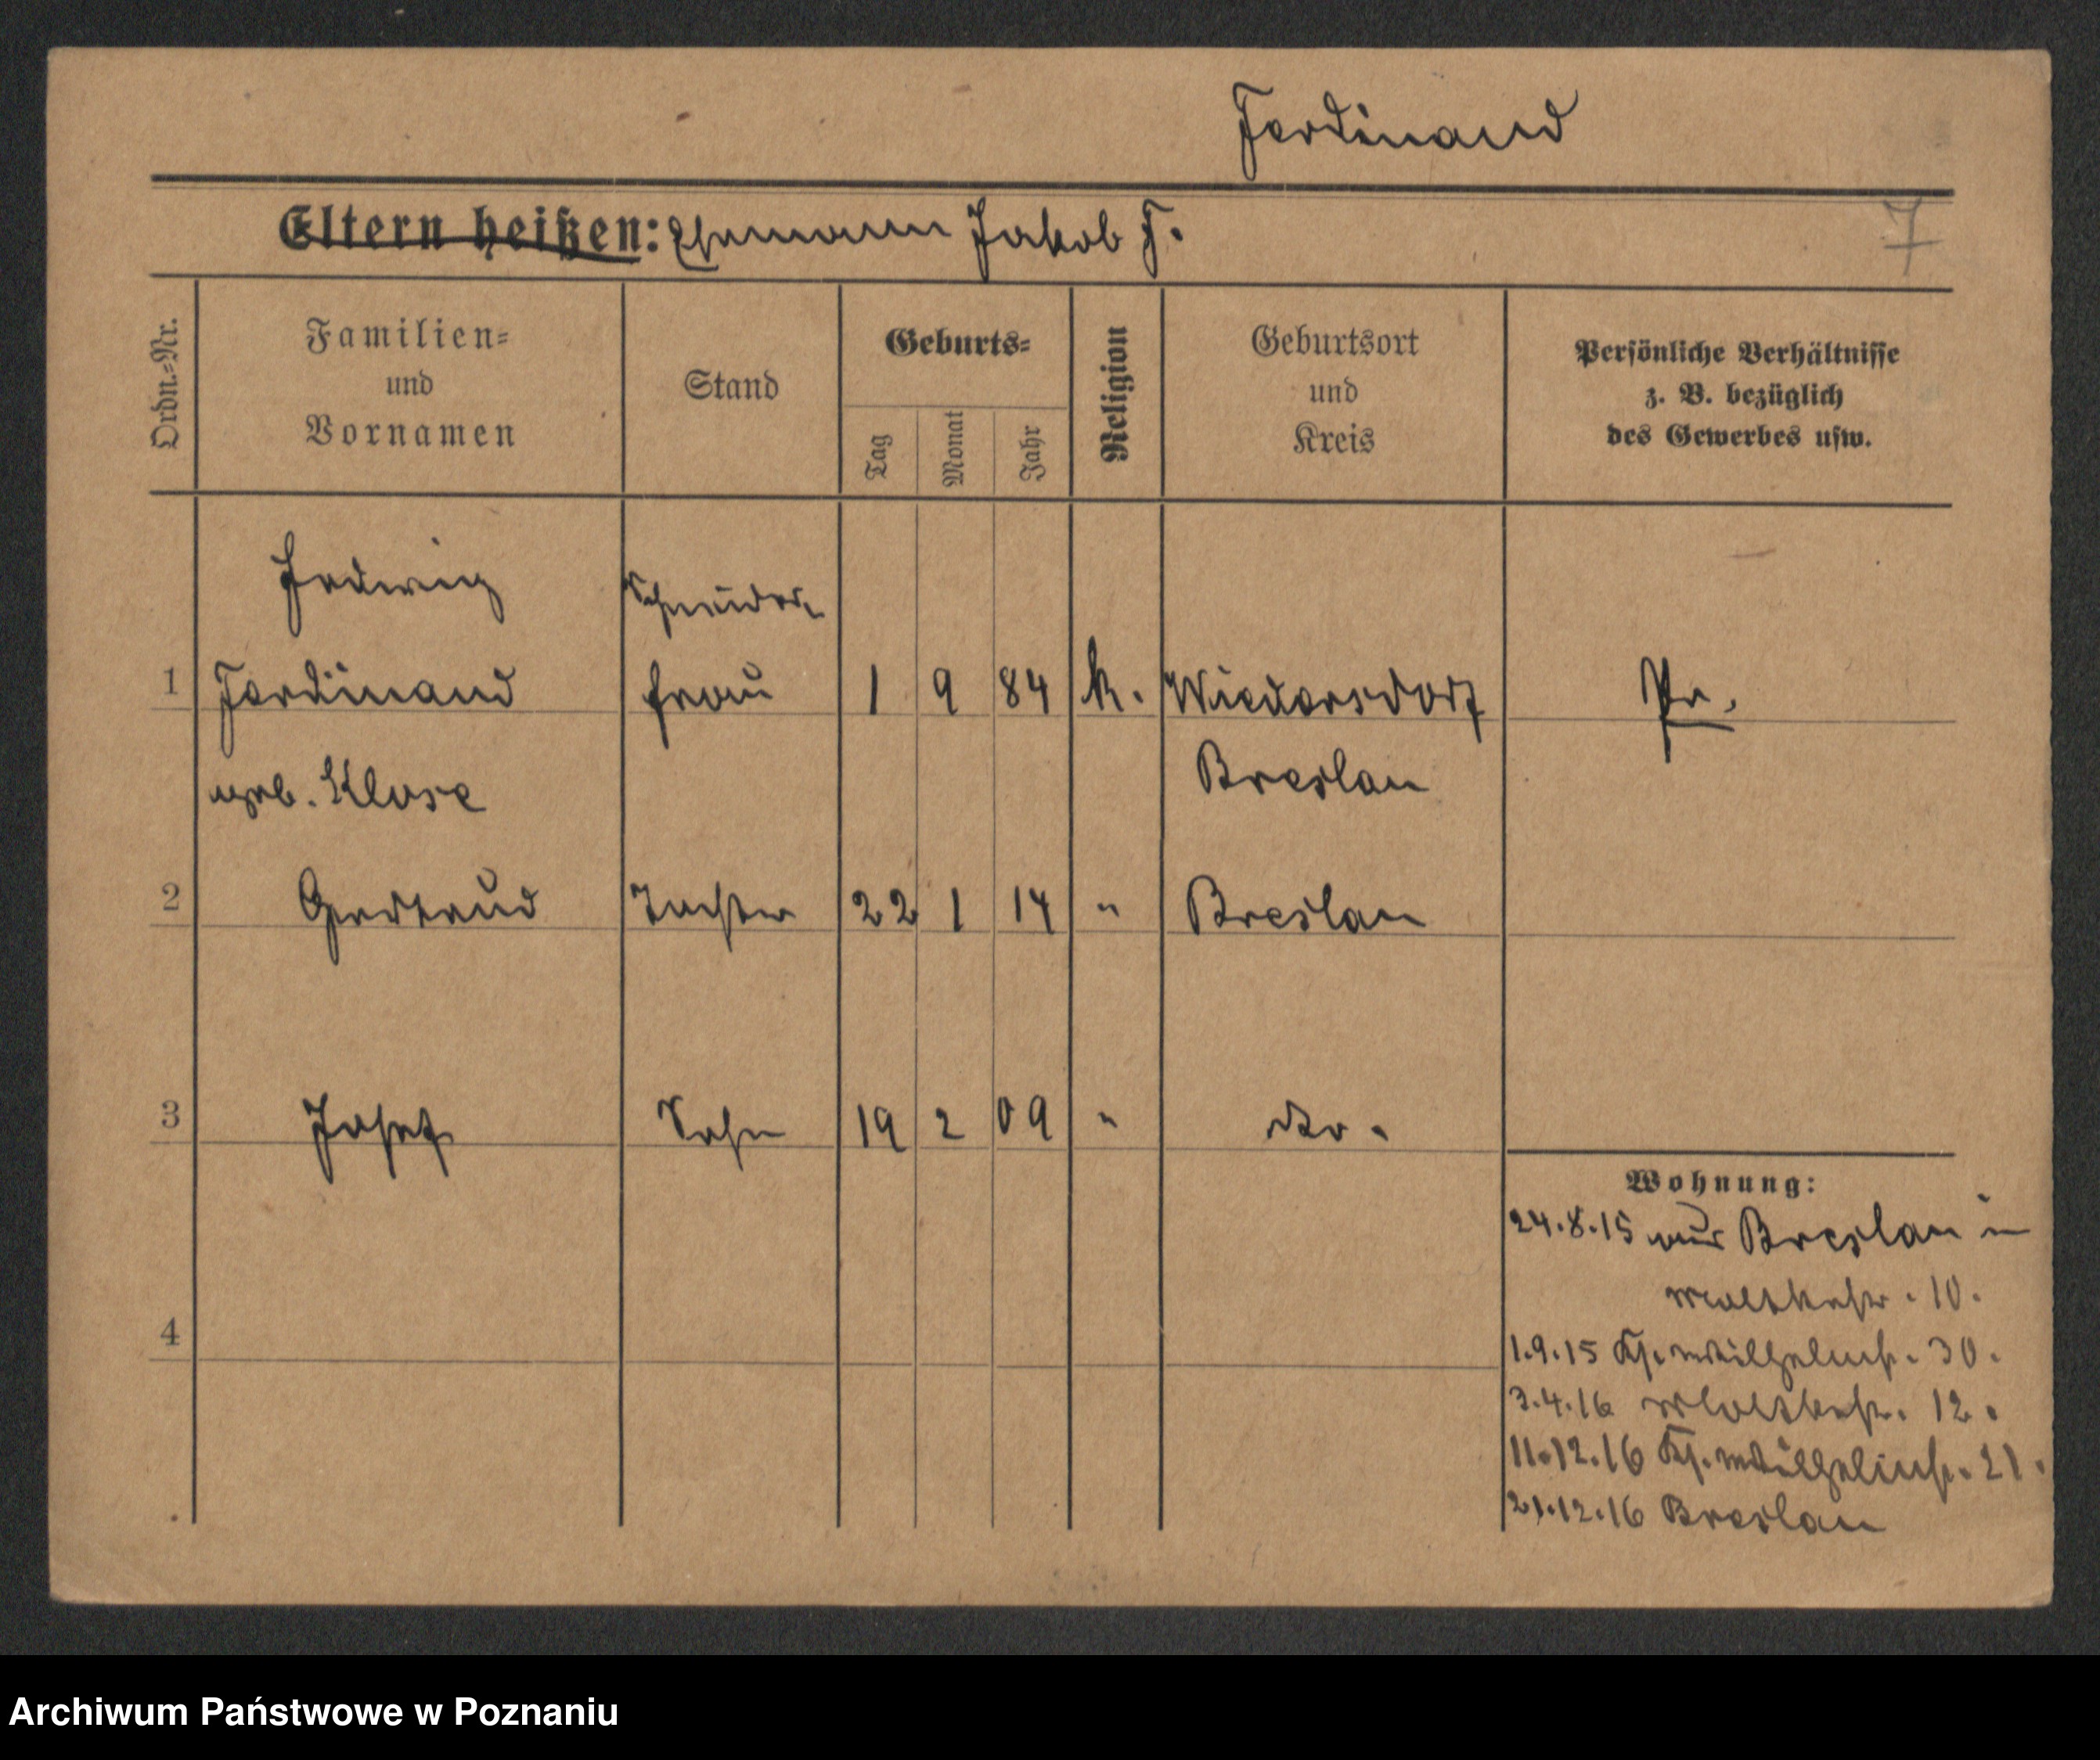 Ferdinand
Eltern heißen: Ehemann Jakob F.
7
Ordn.-Nr.
Familien-
und
Vornamen
Stand
Geburts-
Tag
Monat
Jahr
Religion
Geburtsort
und
Kreis
Persönliche Verhältnisse
z. B. bezüglich
des Gewerbes usw.
Hedwig Schneider-
1 Ferdinand frau 1 9 84 k. Wiedersdorf Pr.
geb. Klose Breslau
2 Gertraud Tochter 22 1 14 " Breslau
3 Josef Sohn 19 2 09 " do.
Wohnung:
24.8.15 aus Breslau in
Moltkestr. 10.
4
1.9.15 Kr. Wilhelmstr. 30.
3.4.16 Moltkestr. 12.
11.12.16 Kr. Wilhelmstr. 21.
21.12.16 Breslau
Archiwum Państwowe w Poznaniu